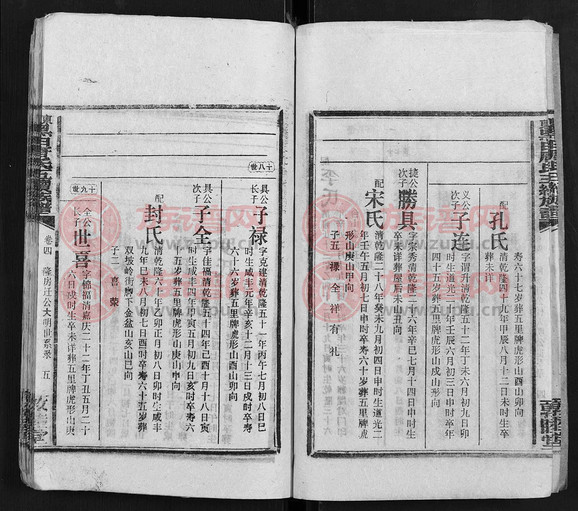 壽六十七歲葬五里牌虎形山酉山卯向
配
孔氏
清乾隆四十九年甲辰八月十二日未時生卒
葬未詳
義公
次子
子连
字謂升清乾隆五十二年丁未六月初九日卯
時生道光二十年壬辰六月初三日申時卒年
四十五歲葬五里牌虎形山戌山辰向
捷公
長子
勝具
字宋秀清乾隆二十六年辛巳七月十四日申時生
卒未详葬屋后未山丑向
配
宋氏
清乾隆二十八年癸未九月初四日申時生道光二
年壬午五月初七日申時卒寿六十歲葬五里牌虎
形山庚山甲向
子五 祿 全 祥 有 礼
十八世
具公
長子
子禄
字克建清乾隆五十一年丙午七月初八日巳
時生咸丰元年辛亥十二月十三日戌時卒寿
六十六岁葬五里牌虎形山酉山卯向
具公
次子
子全
字佳福清乾隆五十四年己酉十月十八日亥
時生咸丰四年甲寅五月初九日亥時卒寿六
十五岁葬五里牌虎形山庚山甲向
配
封氏
清乾隆六十年乙卯正月初八日卯時生咸丰
九年己未八月初七日酉時卒寿六十五岁葬
双坡岭街坳下金盆山亥山巳向
子二 喜 荣
十九世
全公
長子
世喜
字錦福清嘉庆二十二年丁丑五月二十
六日戌時生卒未詳葬五里牌虎形山庚
卷四 隆房迁公大明世系录 五
族谱网